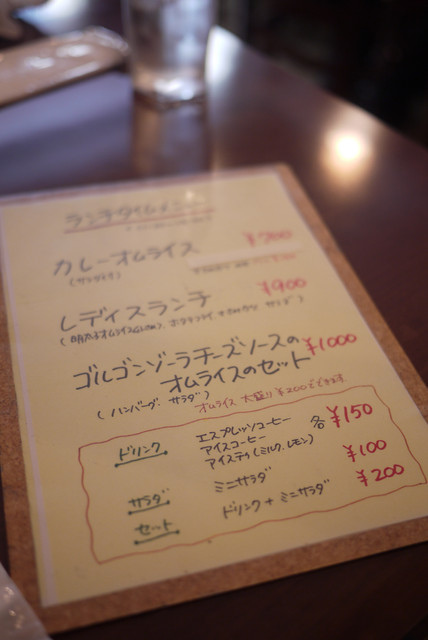 ランチタイムメニュー
カレーオムライス ¥700
(サラダ付)
レディスランチ ¥900
ゴルゴンゾーラチーズソースの ¥1000
オムライスのセット
(ハンバーグ サラダ)
オムライス大盛り ¥200でできます
ドリンク エスプレッソコーヒー 各¥150
アイスコーヒー
アイスティ(ミルク、レモン)
サラダ ミニサラダ ¥100
セット ドリンク+ミニサラダ ¥200